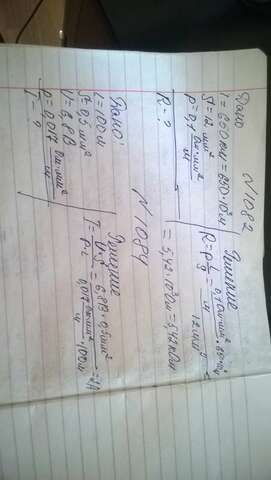 N 1082
Дано
l = 650 км = 650·10³ м
S = 12 мм²
ρ = 0,1 Ом·мм²/м
R - ?
Решение
R = ρ l/S =
12 мм²
= 5,42·10³ Ом = 5,42 кОм
N 1084
Дано:
l = 100 м
S = 0,5 мм²
U = 6,8 В
ρ = 0,017 Ом·мм²/м
I - ?
Решение
I = U·S/ρ·l = 6,8В·0,5мм²/0,017 Ом·мм²/м·100м = 2А